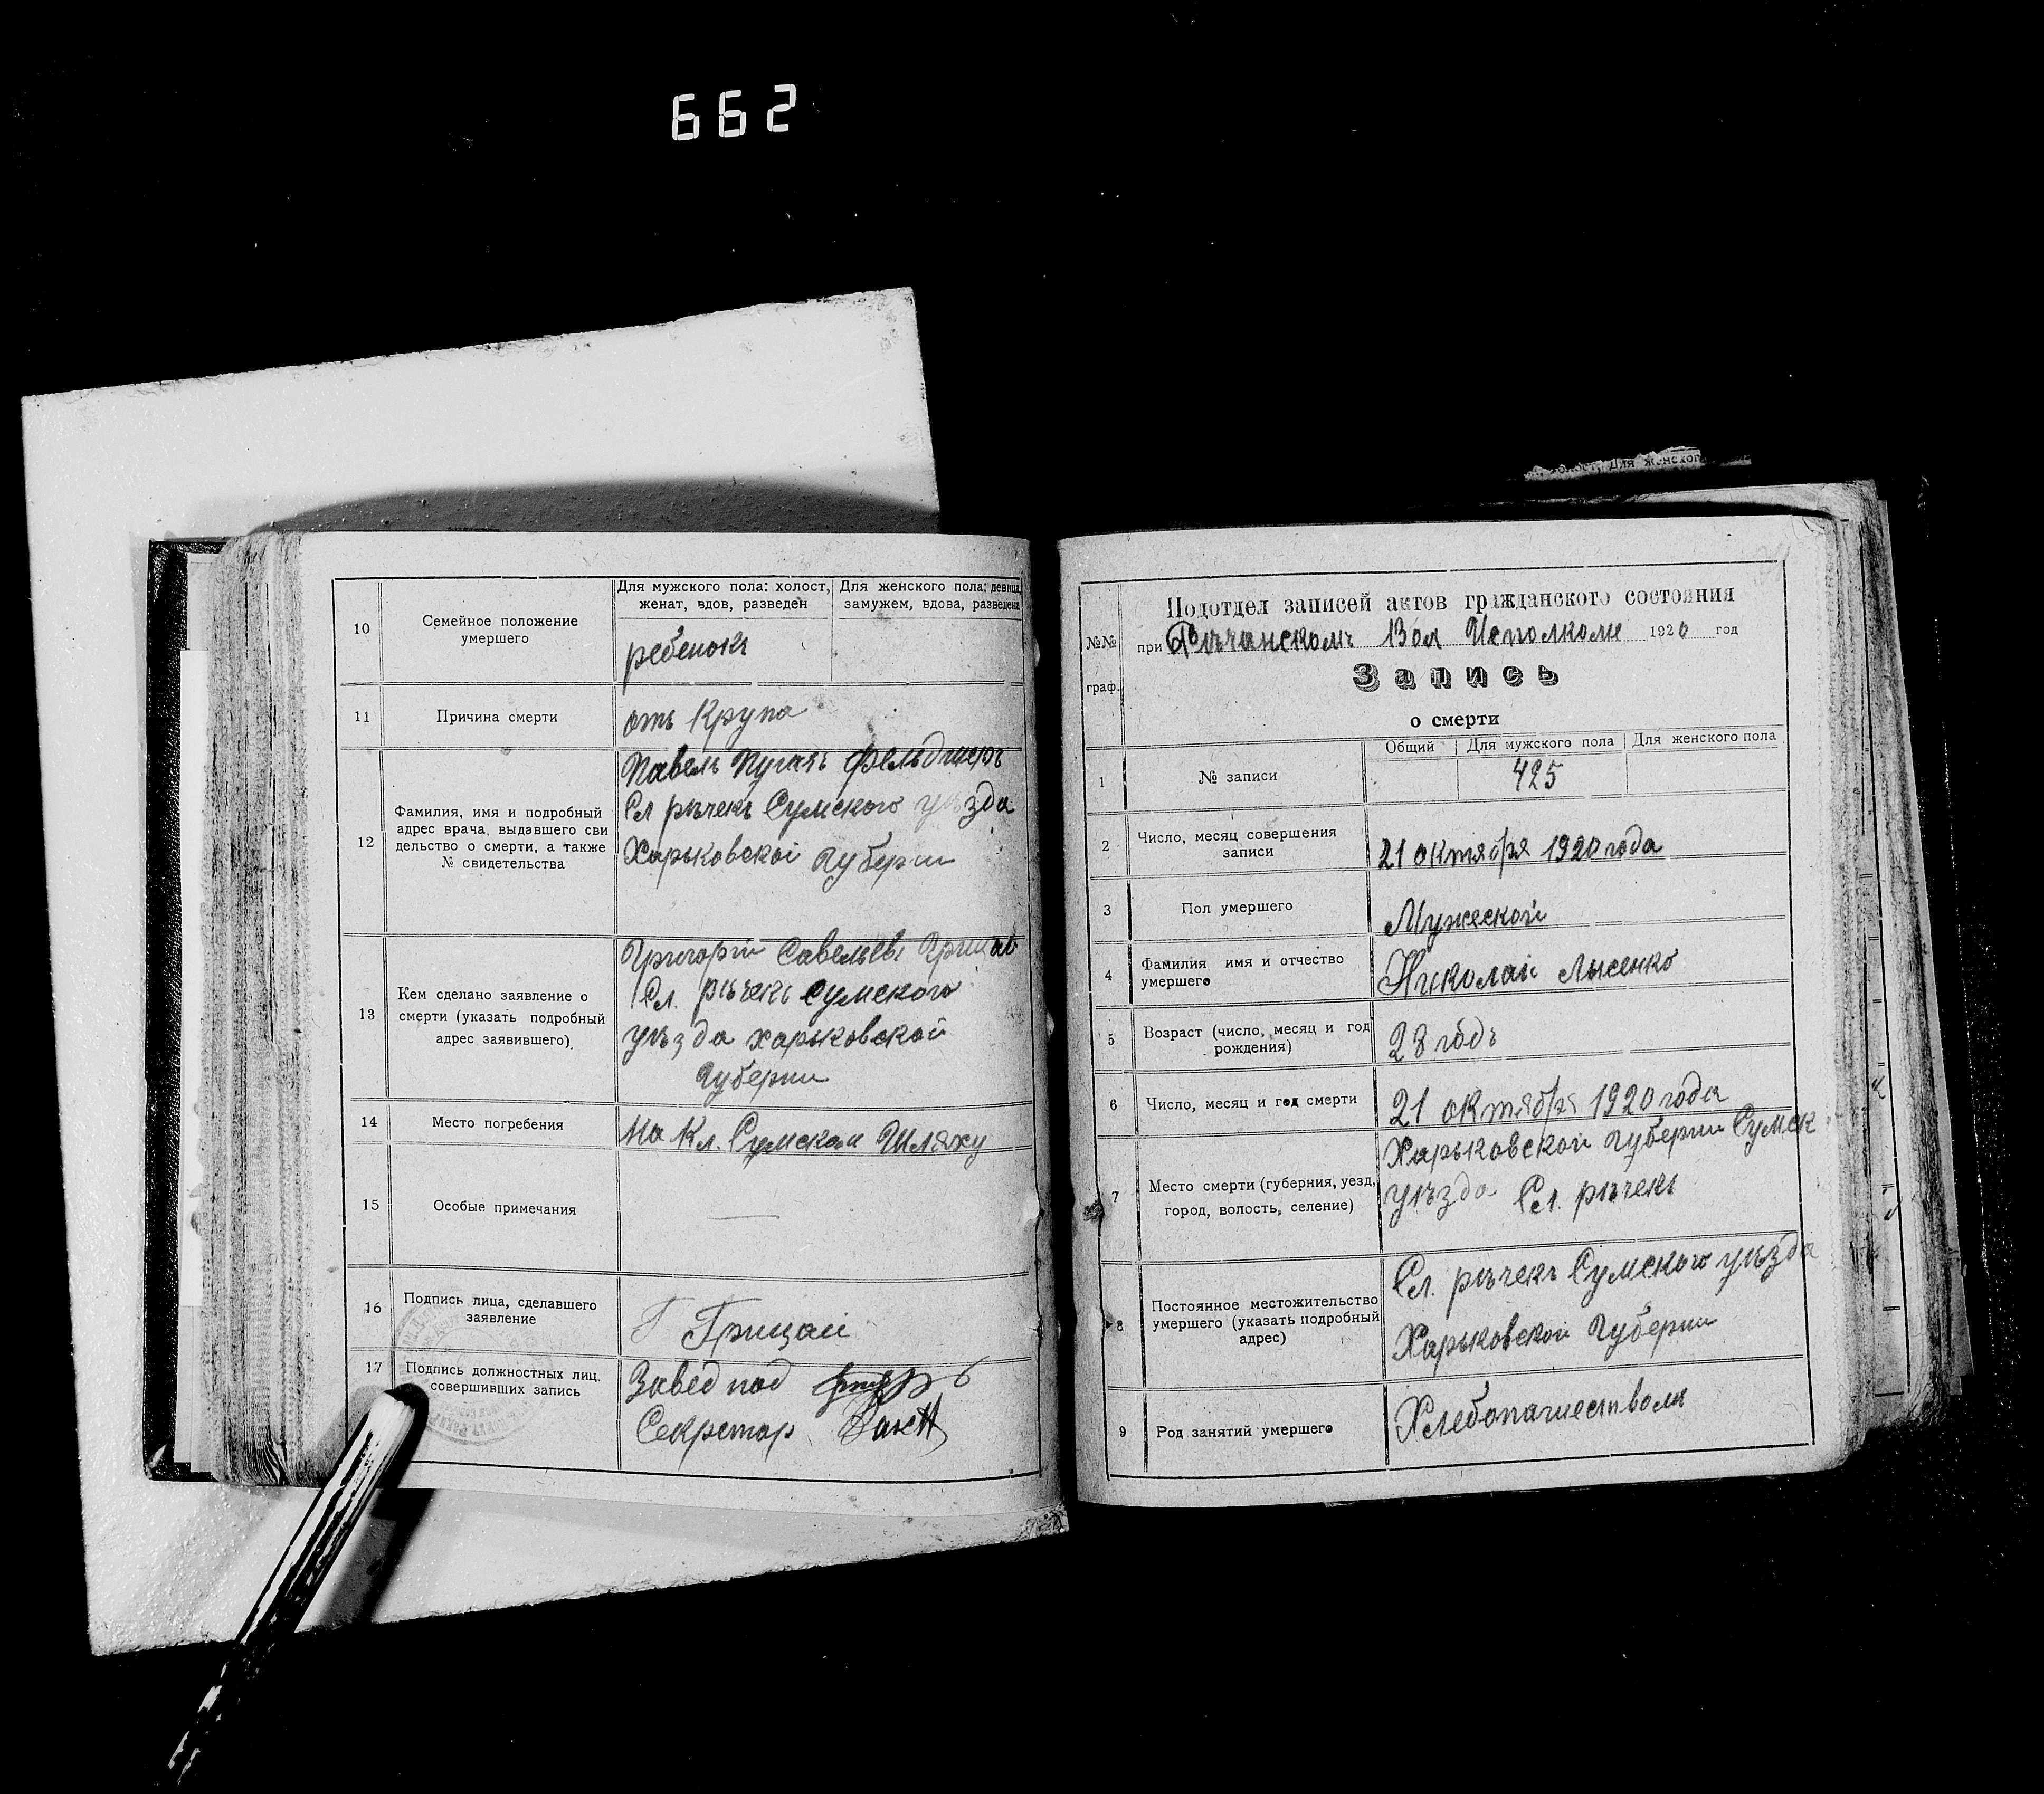 662
10
Семейное положение
умершего
Для мужского пола: холост,
женат, вдов, разведен
Для женского пола: девица,
замужем, вдова, разведена
ребенокъ
11
Причина смерти
отъ Крупа
12
Фамилия, имя и подробный
адрес врача, выдавшего сви
дельство о смерти, а также
№ свидетельства
Павелъ Пугачъ фельдшеръ
Сл рѣчекъ Сумского уѣзда
Харьковской Губерни
13
Кем сделано заявление о
смерти (указать подробный
адрес заявившего).
Григорій Савельевъ Грицай
Сл. рѣчекъ Сумского
уѣзда харьковской
Губерни
14
Место погребения
на Кл. Сумском Шляху
15
Особые примечания
—
16
Подпись лица, сделавшего
заявление
Г Грицай
17
Подпись должностных лиц.
совершивших запись
Завед под
Секретар
Для женского
№№
граф.
Подотдел записей актов гражданского состояния
при Рѣчанскомъ Вол Исполкоме 1920 год
Запись
о смерти
Общий
Для мужского пола
Для женского пола
1
№ записи
425
2
Число, месяц совершения
записи
21 октября 1920 года
3
Пол умершего
Мужеской
4
Фамилия имя и отчество
умершего
Николай Лысенко
5
Возраст (число, месяц и год
рождения)
28 годъ
6
Число, месяц и год смерти
21 октября 1920 года
7
Место смерти (губерния, уезд,
город, волость, селение)
Харьковской Губерни Сумск
уѣзда Сл. рѣчекъ
8
Постоянное местожительство
умершего (указать подробный
адрес)
Сл. рѣчекъ Сумского уѣзда
Харьковской Губерни
9
Род занятий умершего
Хлебопашествомъ